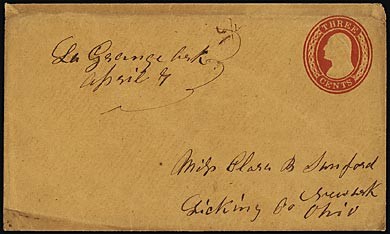 THREE
CENTS
La Grange Ark
April 7
Miss Clara B Sanford
Newark
Licking Co Ohio